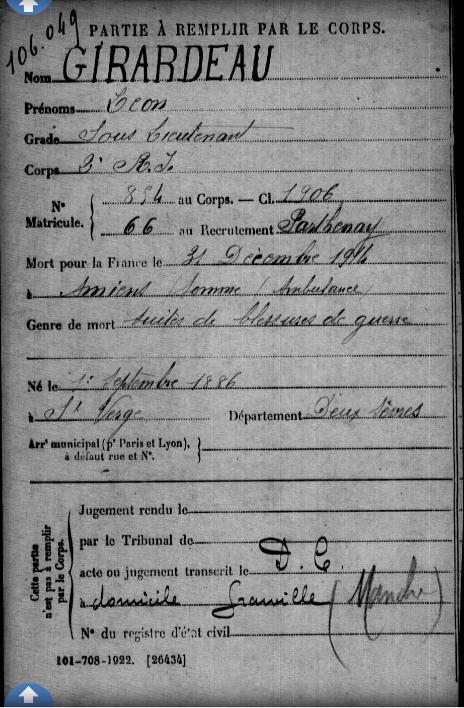 106.049
PARTIE À REMPLIR PAR LE CORPS.
Nom GIRARDEAU
Prénoms Léon
Grade Sous Lieutenant
Corps 2e R.I.
N° Matricule. 854 au Corps. — Cl. 1906
66 au Recrutement Parthenay
Mort pour la France le 31 Décembre 1914
à Amiens Somme (Ambulance)
Genre de mort suites de blessures de guerre
Né le 1er Septembre 1886
à St Verge Département Deux Sèvres
Arrt municipal (pr Paris et Lyon),
à défaut rue et N°.
Cette partie
n'est pas à remplir
par le Corps.
Jugement rendu le
par le Tribunal de
acte ou jugement transcrit le D. C.
à domicile Granville (Manche)
N° du registre d'état civil
101-708-1922. [26434]